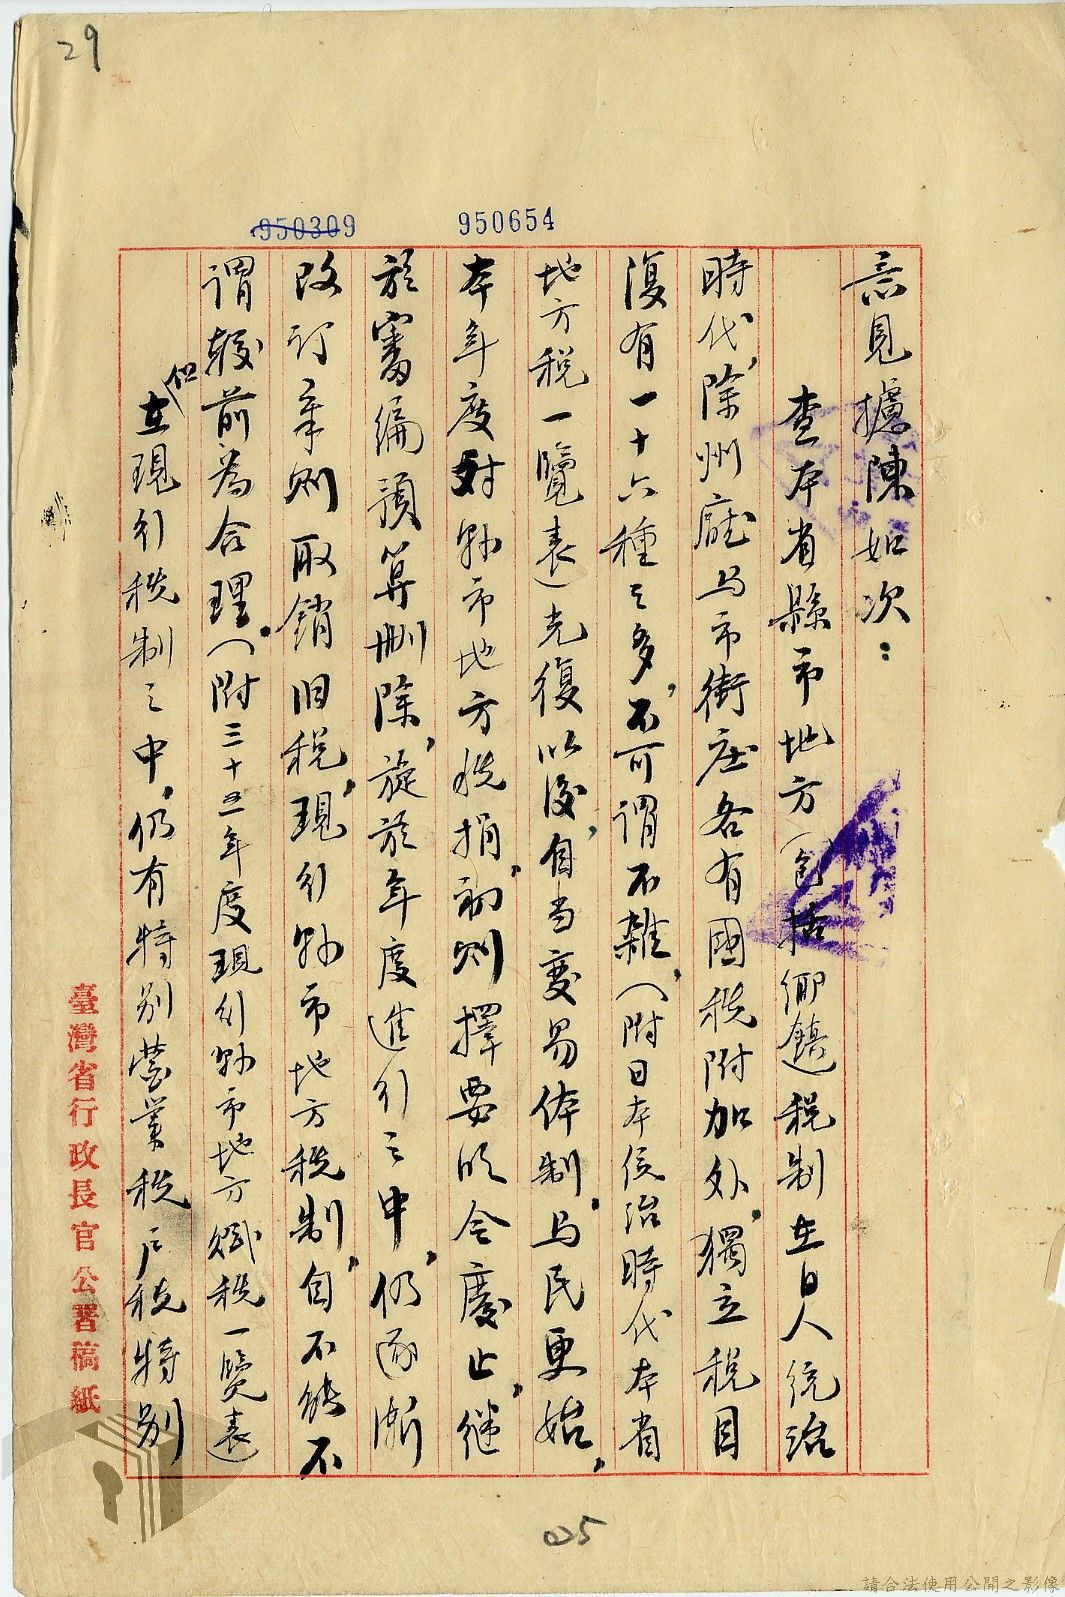 29
950309
950654
意見攄陳如次：
查本省縣市地方（包括鄉鎮）税制在日人统治
時代，除州廳与市街庄各有國税附加外，獨立税目
復有一十六種之多，不可謂不雜，（附日本侵治時代本省
地方税一覽表）光復以後，自当变易体制，与民更始，
本年度对縣市地方税捐，初则擇要明令廢止，继
於審編預算删除，旋於年度進行之中，仍逐渐
改訂章则取銷旧税，現行縣市地方税制，自不能不
謂較前為合理。（附三十五年度現行縣市地方賦税一覽表）
但在現行税制之中，仍有特别营業税户税特别
臺灣省行政長官公署稿紙
025
請合法使用公開之影像